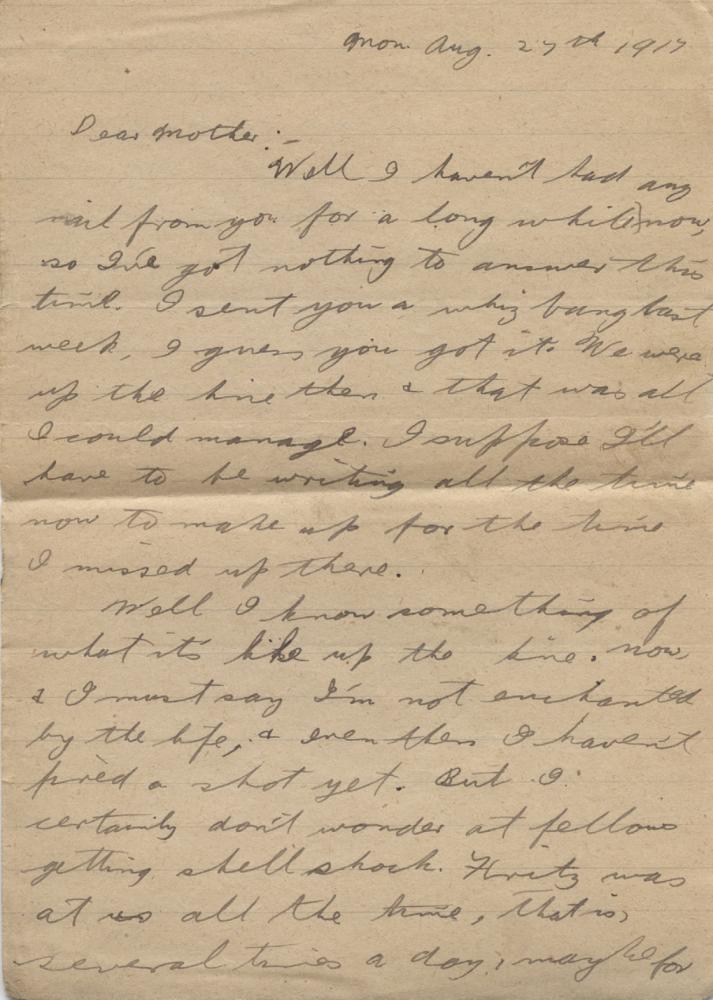 Mon. Aug. 27th 1917
Dear Mother:-
Well I haven't had any
mail from you for a long while now,
so I've got nothing to answer this
time. I sent you a whiz bang last
week, I guess you got it. We were
up the line then & that was all
I could manage. I suppose I'll
have to be writing all the time
now to make up for the time
I missed up there.
Well I know something of
what it's like up the line now,
& I must say I'm not enchanted
by the life, & even then I haven't
fired a shot yet. But I
certainly don't wonder at fellows
getting shell shock. Fritz was
at us all the time, that is,
several times a day, maybe for